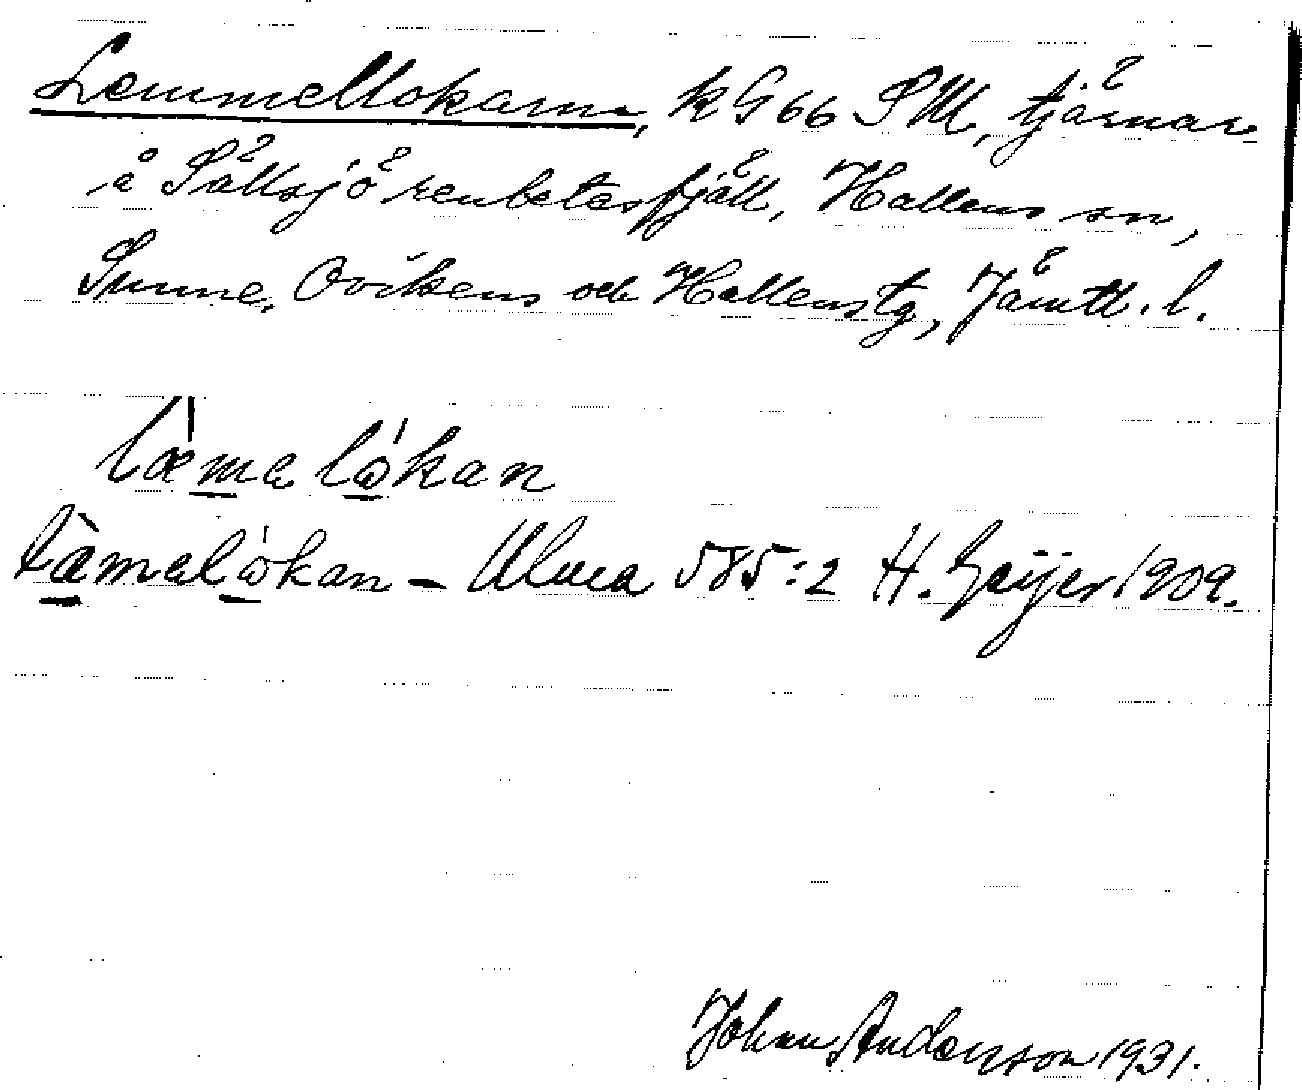 Lemmellokarna, k G 66 SM, tjärnar
å Sällsjö renbetesfjäll, Hallens sn,
Sunne, Ovikens och Hallens tg, Jämtl. l.
læmalåkan
lämalåkan – Ulma 585:2 H. Geijer 1909.
Johan Andersson 1931.